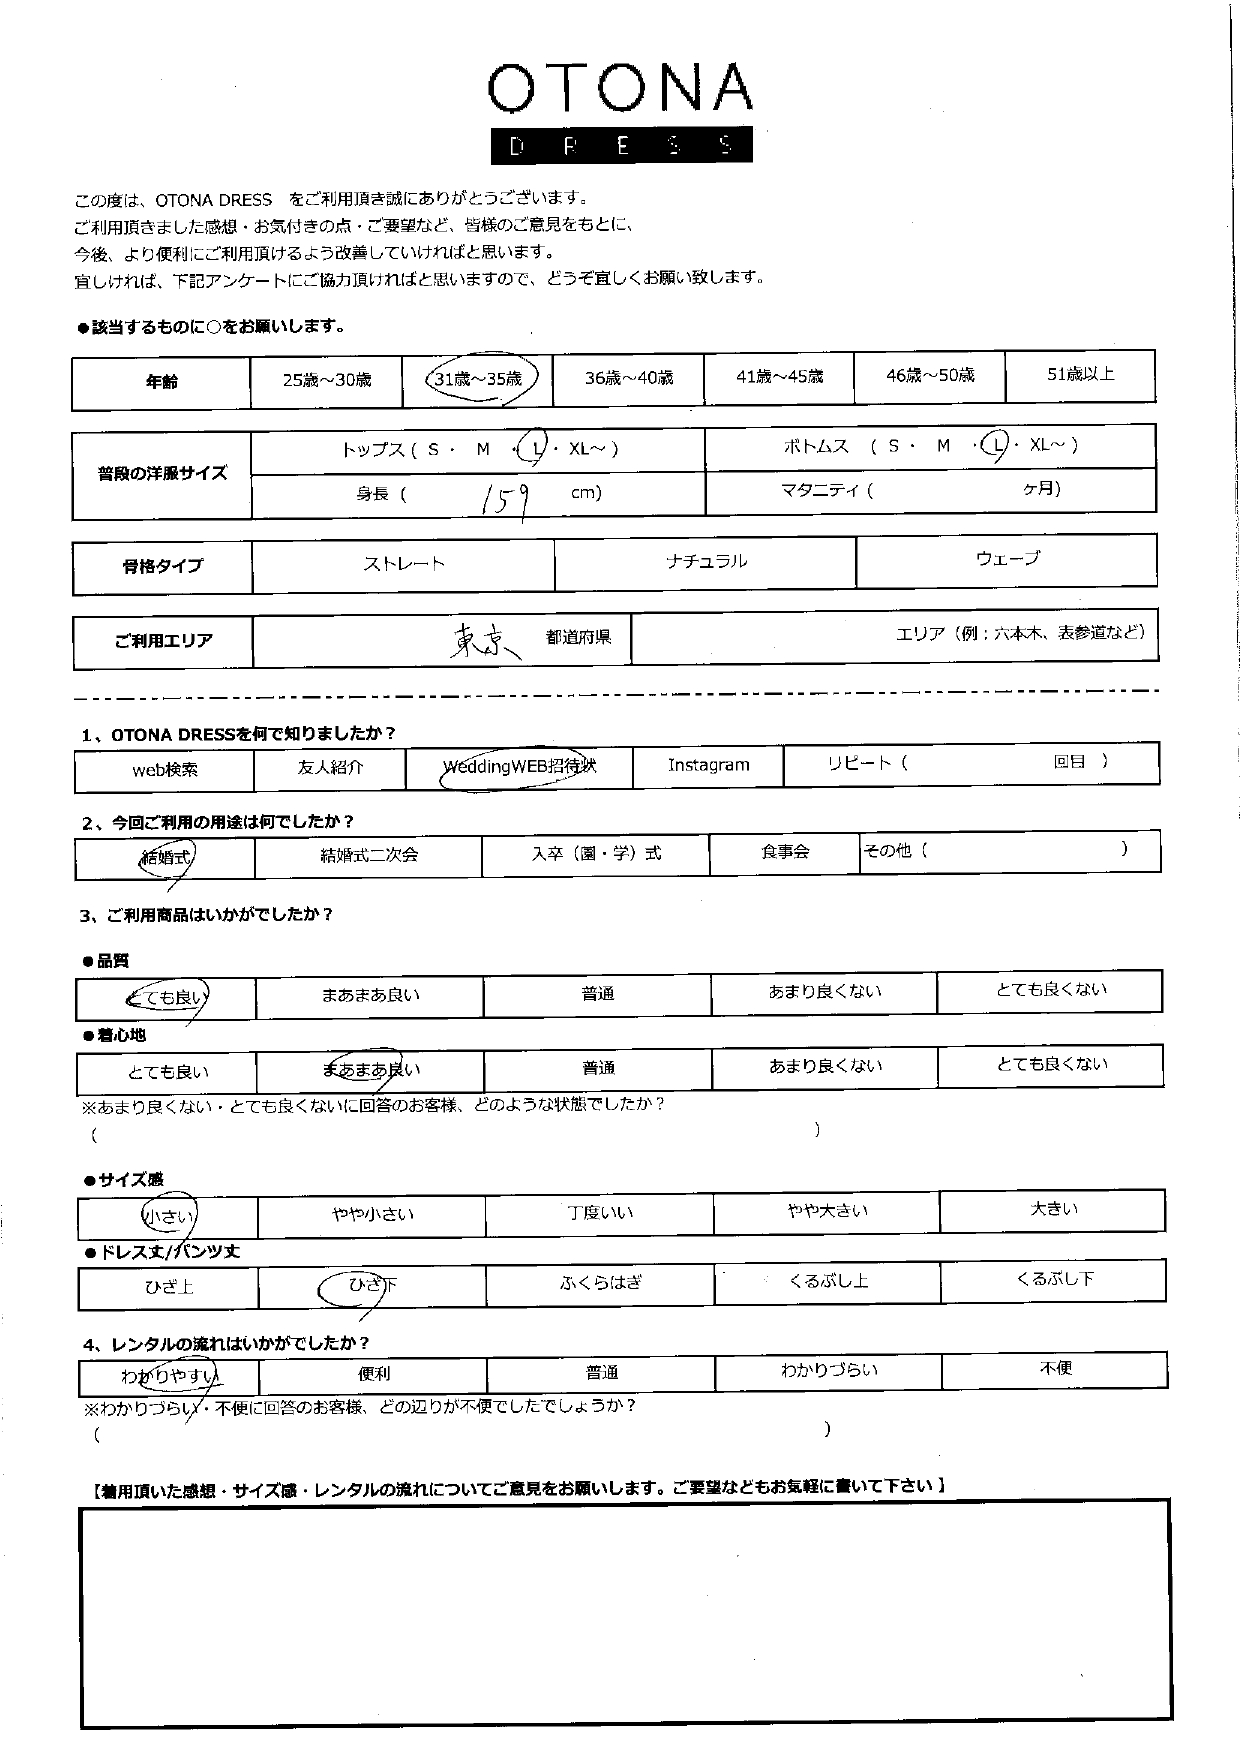 OTONA
DRESS
この度は、OTONA DRESS をご利用頂き誠にありがとうございます。
ご利用頂きました感想・お気付きの点・ご要望など、皆様のご意見をもとに、
今後、より便利にご利用頂けるよう改善していければと思います。
宜しければ、下記アンケートにご協力頂ければと思いますので、どうぞ宜しくお願い致します。
●該当するものに○をお願いします。
年齢 25歳～30歳 31歳～35歳 36歳～40歳 41歳～45歳 46歳～50歳 51歳以上
普段の洋服サイズ トップス ( S ・ M ・ L ・ XL～ ) ボトムス ( S ・ M ・ L ・ XL～ )
身長 ( 159 cm) マタニティ ( ケ月)
骨格タイプ ストレート ナチュラル ウェーブ
ご利用エリア 東京 都道府県 エリア（例：六本木、表参道など）
1、OTONA DRESSを何で知りましたか？
web検索 友人紹介 WeddingWEB招待状 Instagram リピート ( 回目 )
2、今回ご利用の用途は何でしたか？
結婚式 結婚式二次会 入卒（園・学）式 食事会 その他 ( )
3、ご利用商品はいかがでしたか？
●品質
とても良い まあまあ良い 普通 あまり良くない とても良くない
●着心地
とても良い まあまあ良い 普通 あまり良くない とても良くない
※あまり良くない・とても良くないに回答のお客様、どのような状態でしたか？
( )
●サイズ感
小さい やや小さい 丁度いい やや大きい 大きい
●ドレス丈/パンツ丈
ひざ上 ひざ下 ふくらはぎ くるぶし上 くるぶし下
4、レンタルの流れはいかがでしたか？
わかりやすい 便利 普通 わかりづらい 不便
※わかりづらい・不便に回答のお客様、どの辺りが不便でしたでしょうか？
( )
【着用頂いた感想・サイズ感・レンタルの流れについてご意見をお願いします。ご要望などもお気軽に書いて下さい】